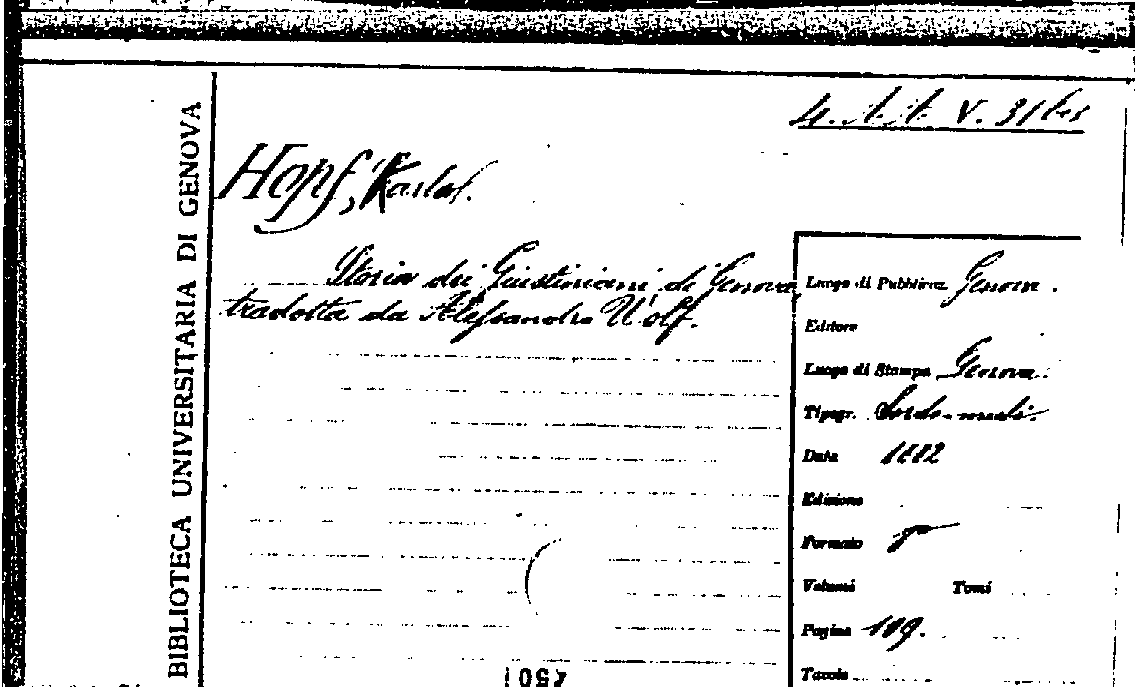 BIBLIOTECA UNIVERSITARIA DI GENOVA
V. 31 bis
Hopf, Karl
Storia dei Giustiniani di Genova,
tradotta da Alessandro Wolf.
Luogo di Pubblicaz. Genova.
Editore
Luogo di Stampa Genova.
Tipogr. Sordo-muti.
Data 1882
Edizione
Formato 8°
Volumi Tomi
Pagine 189.
Tavole